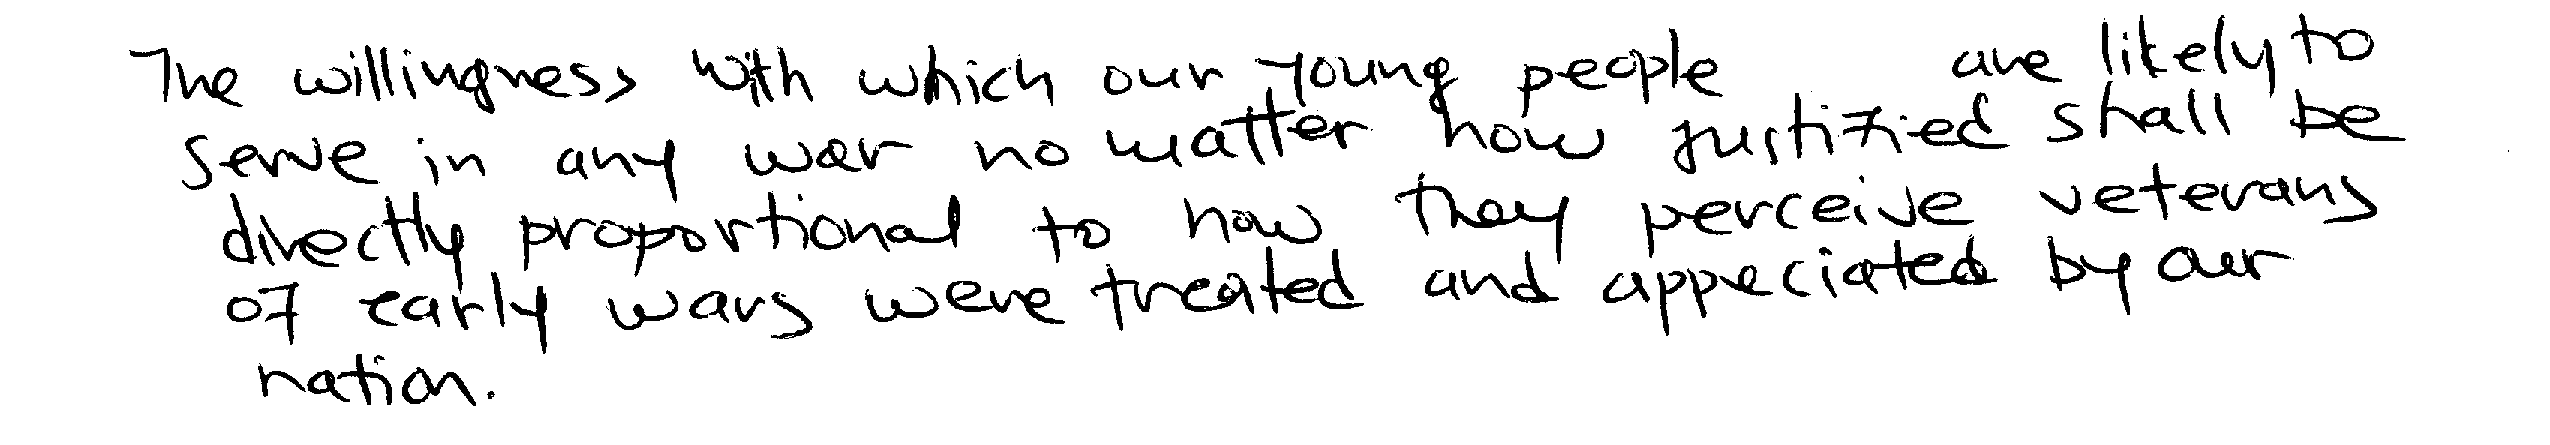 The willingness with which our young people are likely to
serve in any war no matter how justified shall be
directly proportional to how they perceive veterans
of early wars were treated and appeciated by our
nation.